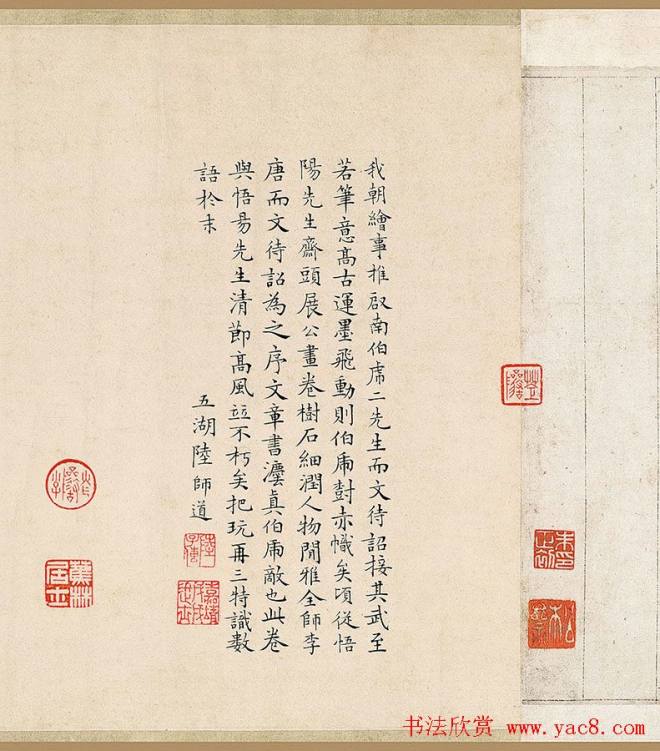 我朝繪事推啟南伯虎二先生而文待詔接其武至
若筆意髙古運墨飛動則伯虎尌赤幟矣頃從悟
陽先生齋頭展公畫卷樹石細潤人物閒雅全師李
唐而文待詔為之序文章書灋真伯虎敵也此卷
與悟昜先生清節髙風竝不朽矣把玩再三特識數
語於末
五湖陸師道
嘉靖戊戌進士
蕉林居士
书法欣赏 www.yac8.com